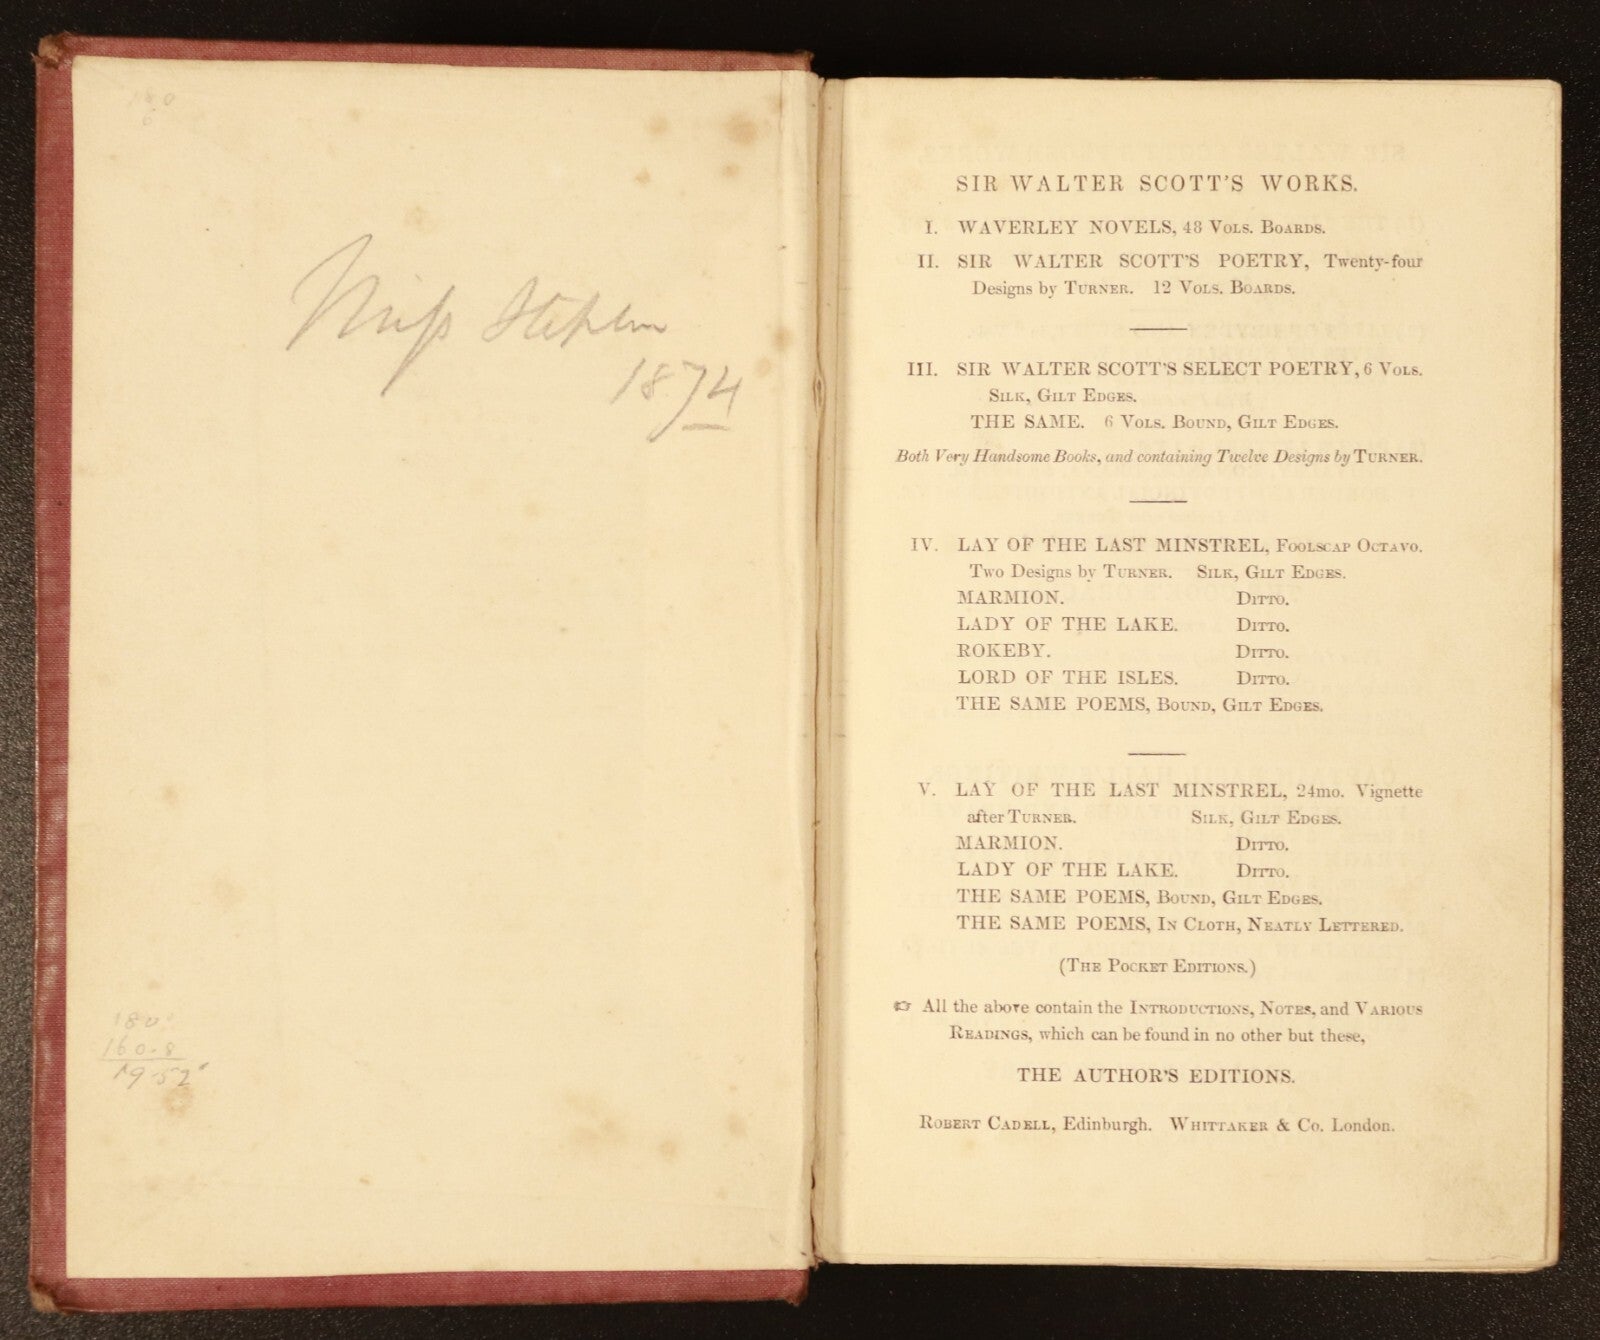 180
6
Miss Stephen
1874
180
160.8
19.52
SIR WALTER SCOTT'S WORKS.
I. WAVERLEY NOVELS, 48 VOLS. BOARDS.
II. SIR WALTER SCOTT'S POETRY, Twenty-four
Designs by TURNER. 12 VOLS. BOARDS.
III. SIR WALTER SCOTT'S SELECT POETRY, 6 VOLS.
SILK, GILT EDGES.
THE SAME. 6 VOLS. BOUND, GILT EDGES.
Both Very Handsome Books, and containing Twelve Designs by TURNER.
IV. LAY OF THE LAST MINSTREL, FOOLSCAP OCTAVO.
TWO Designs by TURNER. SILK, GILT EDGES.
MARMION. DITTO.
LADY OF THE LAKE. DITTO.
ROKEBY. DITTO.
LORD OF THE ISLES. DITTO.
THE SAME POEMS, BOUND, GILT EDGES.
V. LAY OF THE LAST MINSTREL, 24mo. Vignette
after TURNER. SILK, GILT EDGES.
MARMION. DITTO.
LADY OF THE LAKE. DITTO.
THE SAME POEMS, BOUND, GILT EDGES.
THE SAME POEMS, IN CLOTH, NEATLY LETTERED.
(THE POCKET EDITIONS.)
☞ All the above contain the INTRODUCTIONS, NOTES, and VARIOUS
READINGS, which can be found in no other but these,
THE AUTHOR'S EDITIONS.
ROBERT CADELL, Edinburgh. WHITTAKER & Co. London.